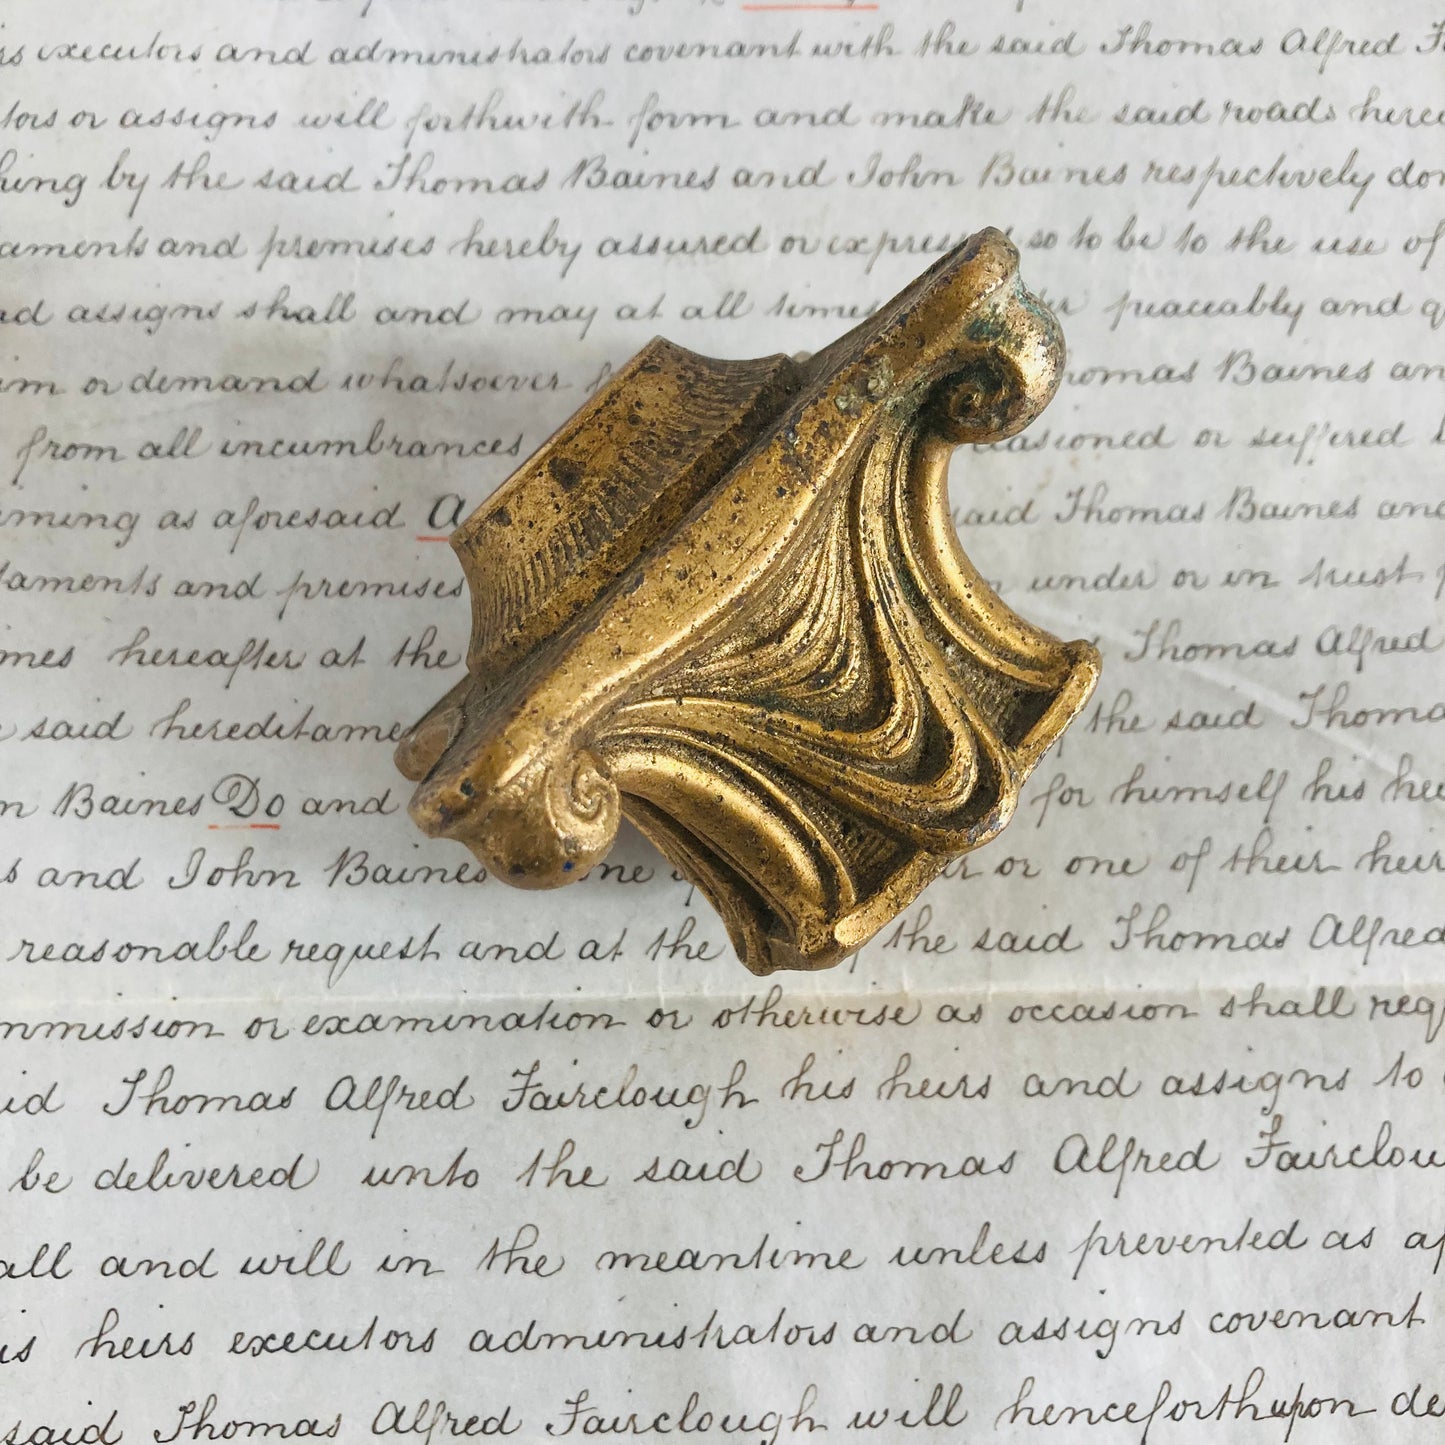 executors and administrators covenant with the said Thomas Alfred
or assigns will forthwith form and make the said roads
by the said Thomas Baines and John Baines respectively
and premises hereby assured or so to be to the use of
assigns shall and may at all times peaceably and
or demand whatsoever Baines
from all incumbrances or suffered
as aforesaid A said Thomas Baines and
and premises under or in trust
hereafter at the Thomas Alfred
said the said
Baines Do and for himself his
and John Baines or one of their
reasonable request and at the the said Thomas Alfred
or examination or otherwise as occasion shall
Thomas Alfred Fairclough his heirs and assigns to
be delivered unto the said Thomas Alfred
and will in the meantime unless prevented as
heirs executors administrators and assigns covenant
said Thomas Alfred Fairclough will henceforth upon